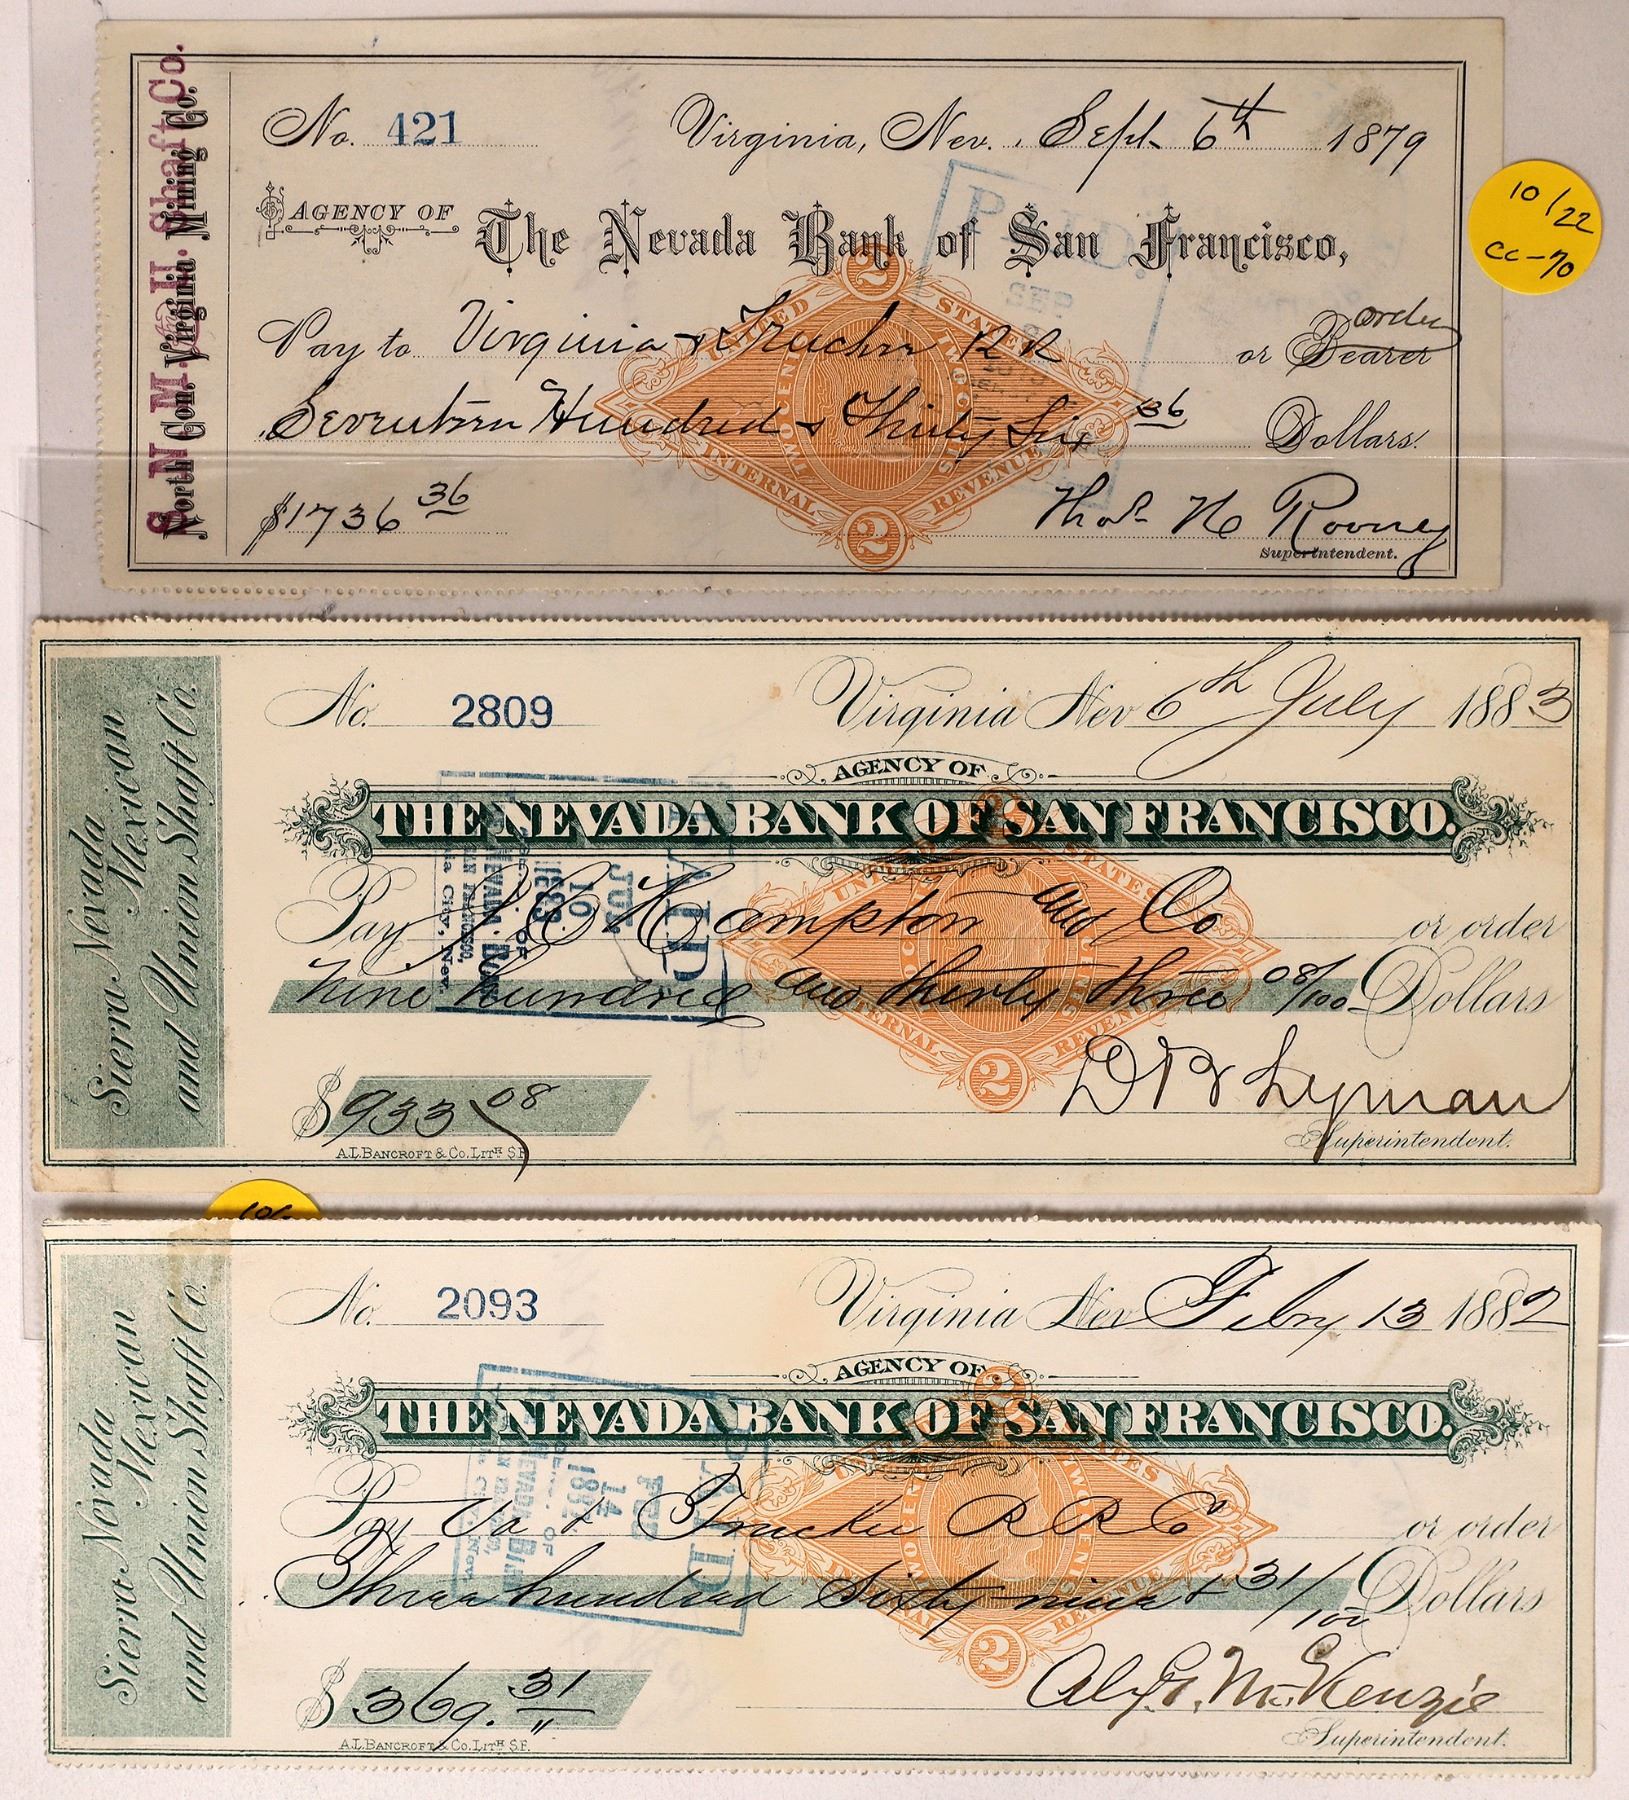 S. N. M. & U. Shaft Co.
North Con. Virginia Mining Co.
No. 421 Virginia, Nev. Sept. 6th 1879
AGENCY OF The Nevada Bank of San Francisco,
PAID.
SEP
Pay to Virginia & Truckee RR or Bearer order
Seventeen Hundred & Thirty Six 36 Dollars.
$1736 36
Thos. H Rooney
Superintendent.
2
UNITED STATES
TWO CENTS TWO CENTS
INTERNAL REVENUE
2
10/22
CC-70
Sierra Nevada
Mexican
and Union Shaft Co.
No. 2809 Virginia Nev 6th July 1883
AGENCY OF
THE NEVADA BANK OF SAN FRANCISCO.
Pay J C Hampton and Co or order
Nine hundred and thirty three 08/100 Dollars
$ 933 08
D B Lyman
Superintendent.
A.L. BANCROFT & CO. LITH S.F.
PAID
JUL
10
1883
OF
NEVADA BANK
SAN FRANCISCO,
Virginia City, Nev.
2
UNITED STATES
INTERNAL REVENUE
2
Sierra Nevada
Mexican
and Union Shaft Co.
No. 2093 Virginia Nev Feby 13 1882
AGENCY OF
THE NEVADA BANK OF SAN FRANCISCO.
Pay Va & Truckee R R Co or order
Three hundred sixty nine & 31/100 Dollars
$ 369. 31
Alex. McKenzie
Superintendent.
A.L. BANCROFT & CO. LITH S.F.
PAID
FEB
14
1882
OF
NEVADA BANK
2
UNITED STATES
TWO CENTS TWO CENTS
INTERNAL REVENUE
2